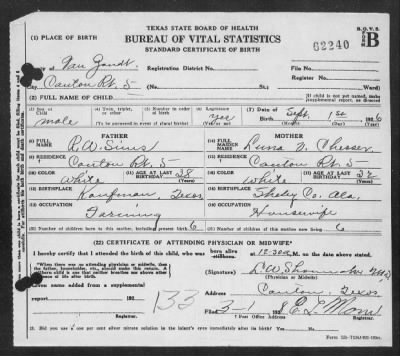 TEXAS STATE BOARD OF HEALTH
BUREAU OF VITAL STATISTICS
STANDARD CERTIFICATE OF BIRTH
B.O.V.S.
B
(1) PLACE OF BIRTH
62240
County of Van Zandt
Registration District No.
File No.
City Canton Rt. 5
No.
St.
Registered No.
Ward)
(2) FULL NAME OF CHILD
If child is not named, make supplemental report, as directed
(3) Sex of Child
male
(4) Twin, triplet, or other
(5) Number in order of birth
(To be answered only in event of plural births)
(6) Legitimate?
yes
(7) Date of Birth Sept. 1st 1926
FATHER
MOTHER
(8) FULL NAME
R.W. Sims
(14) FULL MAIDEN NAME
Chesser
(9) RESIDENCE
Canton Rt. 5
(15) RESIDENCE
Canton Rt. 5
(10) COLOR
white
(11) AGE AT LAST BIRTHDAY 38
(16) COLOR
white
(17) AGE AT LAST BIRTHDAY 32
(12) BIRTHPLACE
Kaufman, Texas
(18) BIRTHPLACE
Shelby Co. Ala.
(13) OCCUPATION
Farming
(19) OCCUPATION
Housewife
(20) Number of children born to this mother, including present birth 6
(21) Number of children of this mother now living 6
(22) CERTIFICATE OF ATTENDING PHYSICIAN OR MIDWIFE*
I hereby certify that I attended the birth of this child, who was
born alive
stillborn
at 12:30 a M. on the date above stated.
*When there was no attending physician or midwife, then the father, householder, etc., should make this return. A stillborn child is one that neither breathes nor shows other evidence of life after birth.
(Signature)
(Physician or Midwife)
Given name added from a supplemental
report
192
133
Address Canton, Texas
Filed 3-1 1928
Registrar.
Post Office Address
Did you use 1 per cent silver nitrate solution in the infant's eyes immediately after birth?